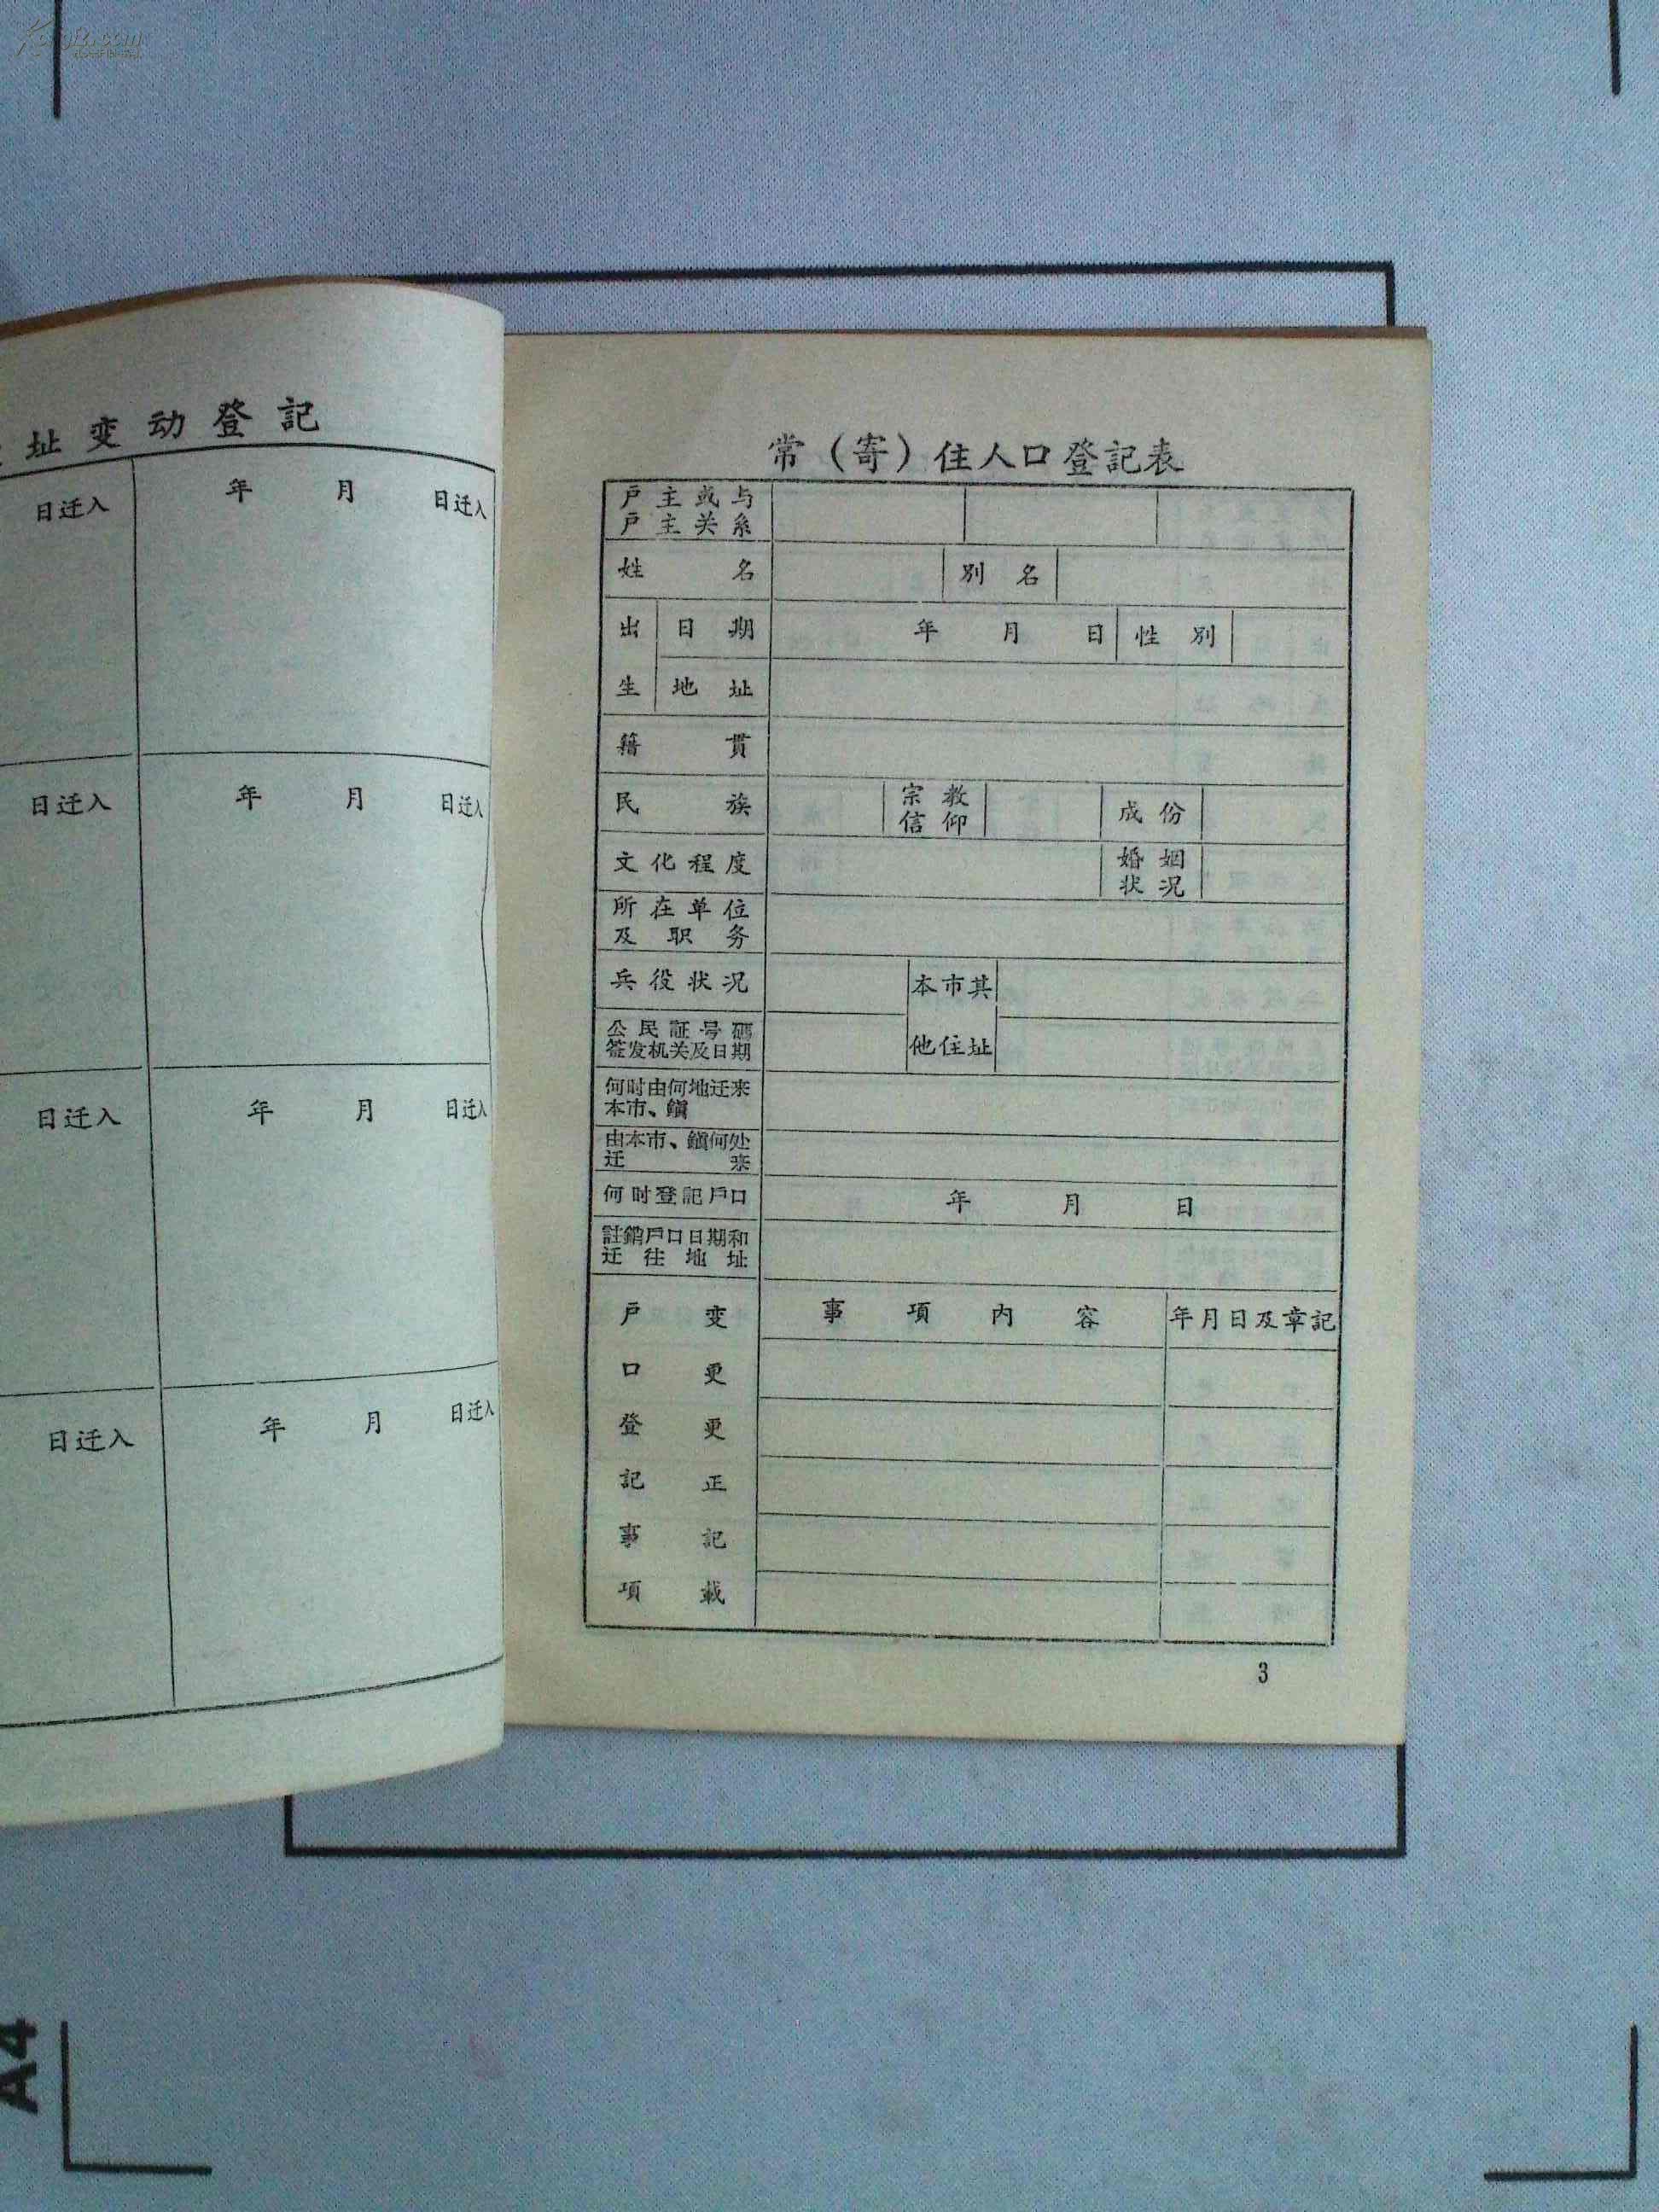 址变动登記
日迁入 年 月 日迁入
日迁入 年 月 日迁入
日迁入 年 月 日迁入
日迁入 年 月 日迁入
常（寄）住人口登記表
戶主或与
戶主关系
姓名 別名
出 日期 年 月 日 性別
生 地址
籍貫
民族 宗教
信仰 成份
文化程度 婚姻
状况
所在单位
及职务
兵役状况 本市其
他住址
公民証号碼
签发机关及日期
何时由何地迁来
本市、鎮
由本市、鎮何处
迁来
何时登記戶口 年 月 日
註銷戶口日期和
迁往地址
戶 变 事項內容 年月日及章記
口 更
登 更
記 正
事 記
項 載
3
A4